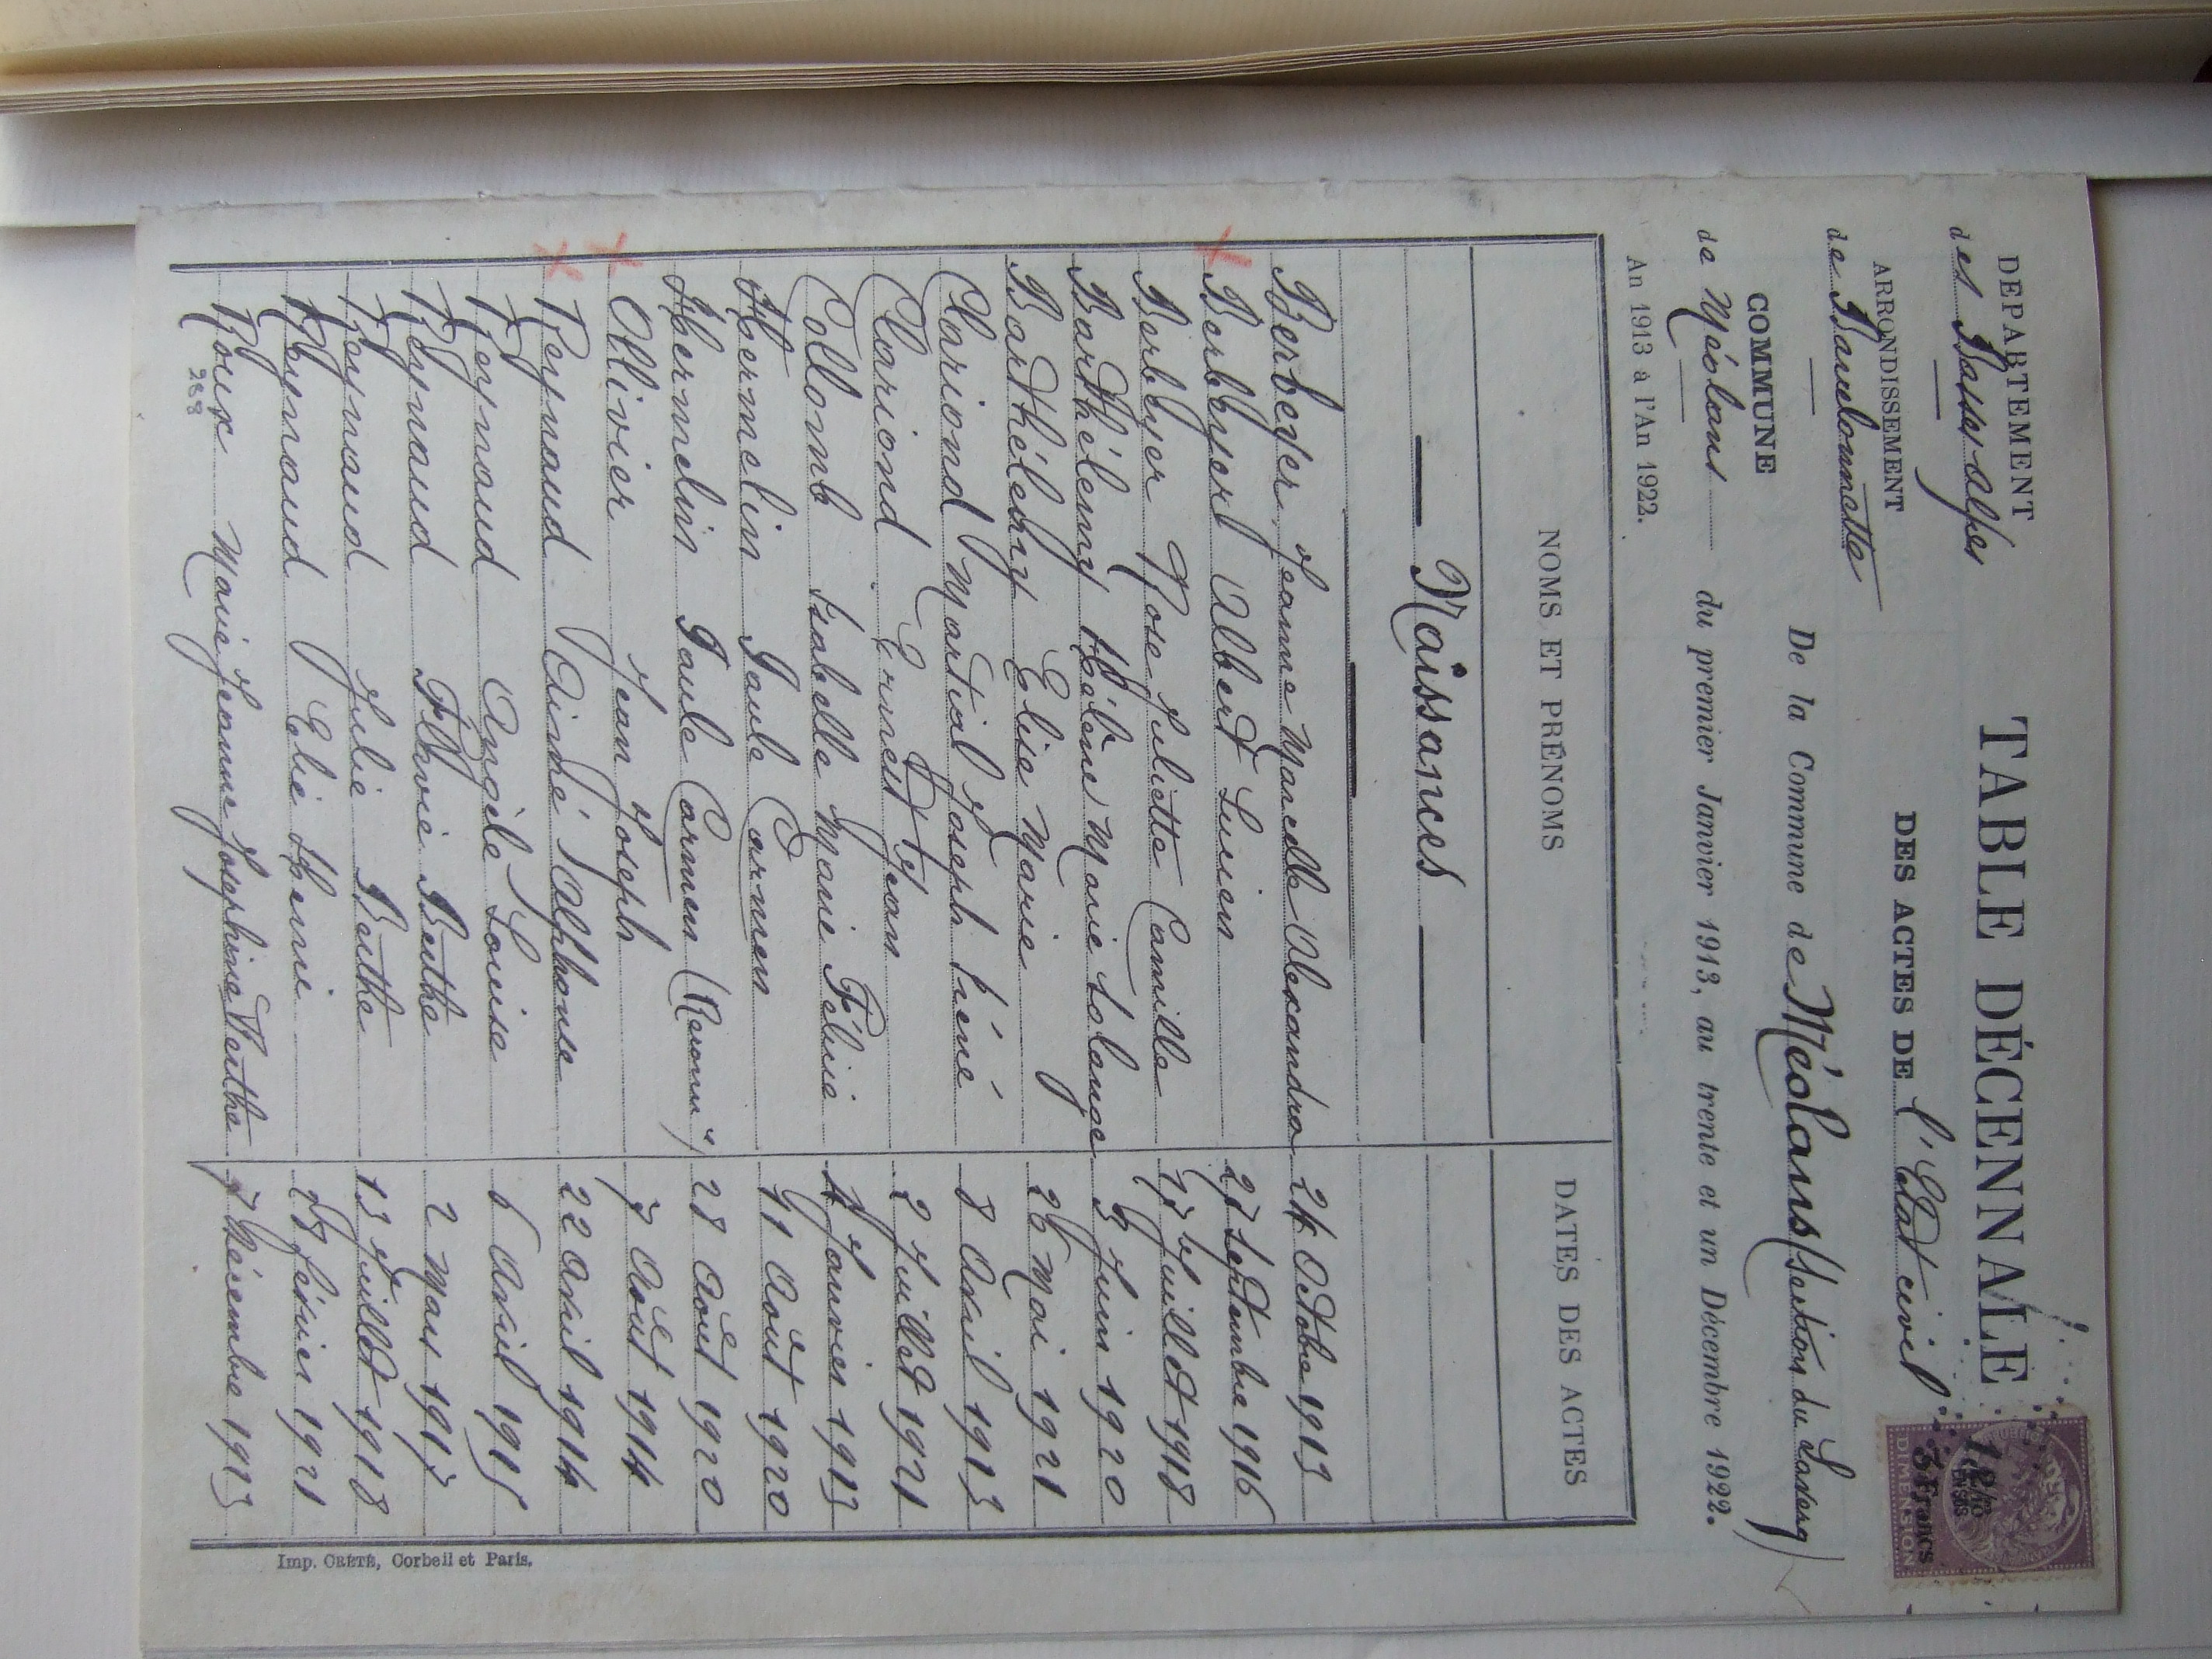 DEPARTEMENT
des Basses-Alpes
ARRONDISSEMENT
de Barcelonnette
COMMUNE
de Méolans
TABLE DÉCENNALE
DES ACTES DE l'Etat civil
De la Commune de Méolans (Section du Laverq)
du premier Janvier 1913, au trente et un Décembre 1922.
An 1913 a l'An 1922.
3 Francs
DIMENSION
NOMS ET PRÉNOMS DATES DES ACTES
Naissances
Berbeyer Jeanne Marcelle Alexandra 24 Octobre 1913
Berbeyer Albert Lucien 27 Septembre 1916
Berbeyer Rose Juliette Camille 17 Juillet 1918
Barthélemy Hélène Marie Solange 3 Juin 1920
Barthélemy Elise Marie 26 Mai 1921
Clariond Martial Joseph Réné 8 Avril 1913
Clariond Ernest Jean 2 Juillet 1921
Collomb Isabelle Marie Félicie 4 Janvier 1913
Hermelin Paule Carmen 11 Août 1920
Hermelin Paule Carmen 28 Août 1920
Ollivier Jean Joseph 7 Août 1914
Reynaud Aimé Alphonse 22 Avril 1914
Reynaud Angèle Louise 6 Avril 1915
Reynaud Flavie Berthe 2 Mars 1917
Reynaud Julie Berthe 13 Juillet 1918
Reynaud Elie Henri 28 Février 1921
Roux Marie Jeanne Joséphine Berthe 7 Décembre 1913
288
Imp. CRÉTÉ, Corbeil et Paris.